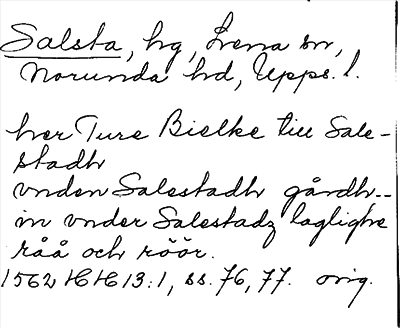 Salsta, hg, Lena sn,
Norunda hd, Upps. l.
her Ture Bielke till Sale-
stadh
vnden Salestadh gårdh..
in vnder Salestadz laglighe
råå och röör.
1562 HH 13:1, ss. 76, 77. orig.